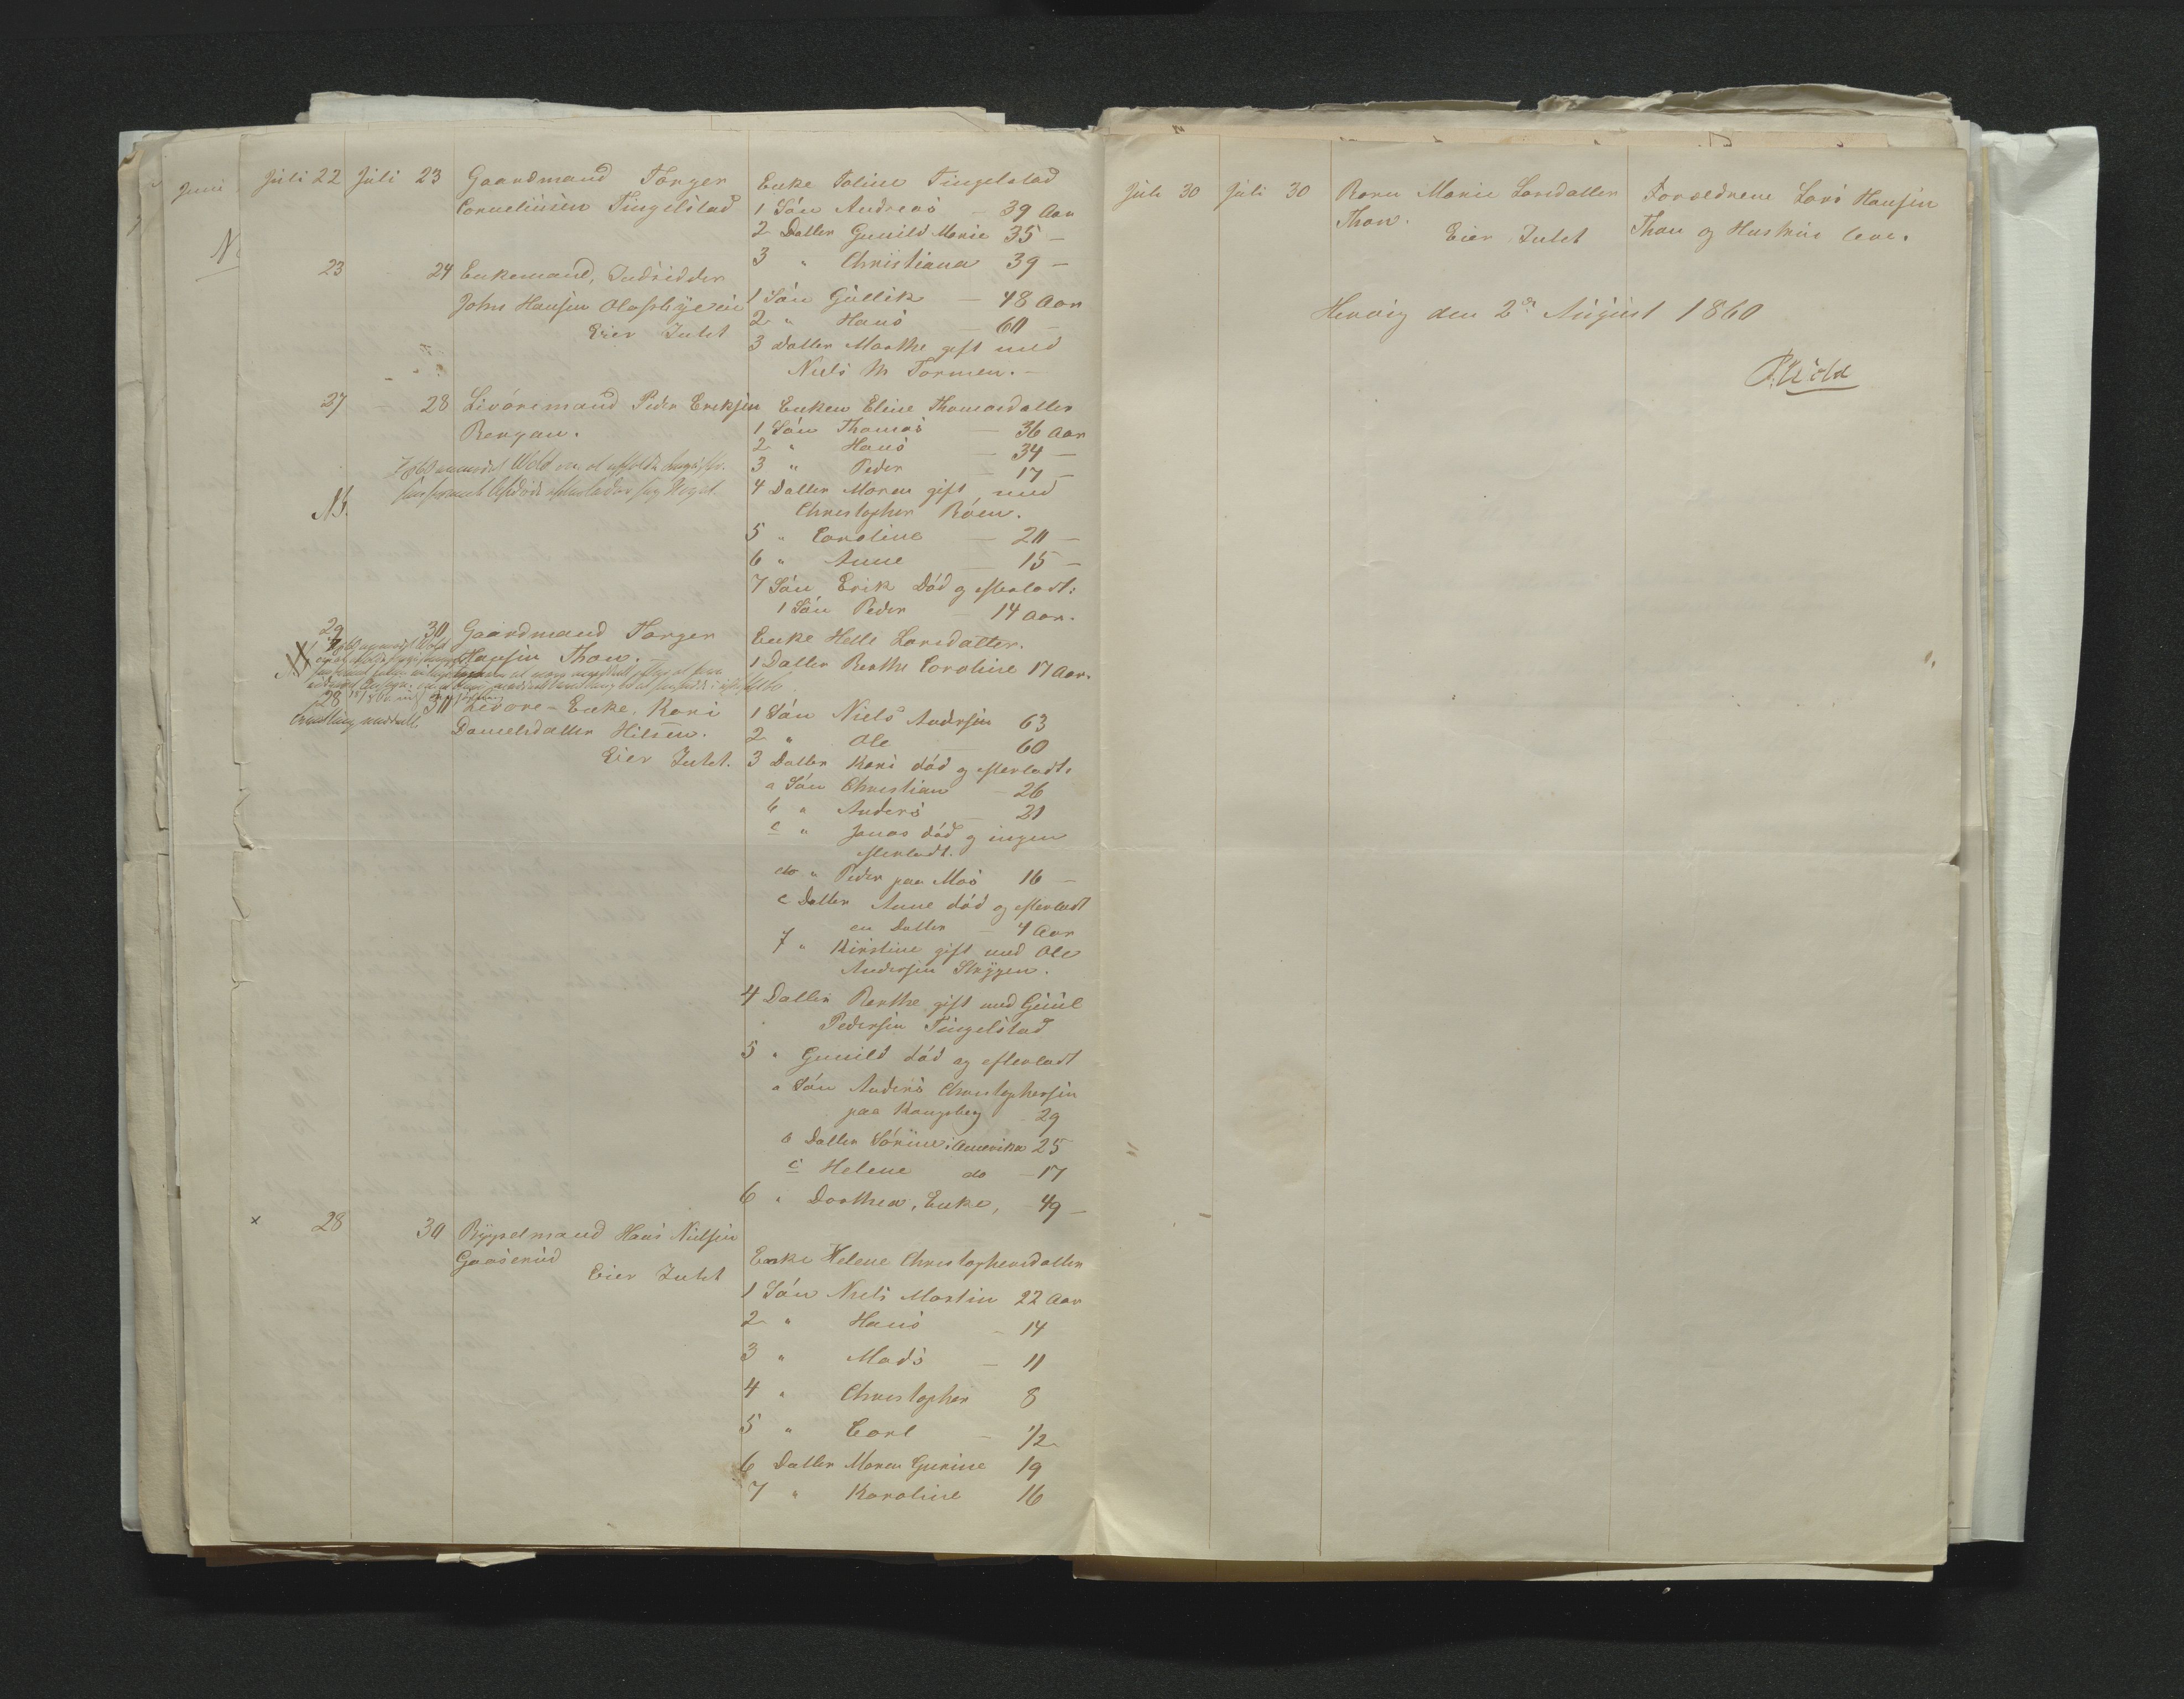 Juni
Juli 22 Juli 23 Gaardmand Torger
Corneliusen Tingelstad
Enke Toline Tingelstad
1 Sön Andreas — 39 Aar
2 Datter Gunild Marie 35 —
3 " Christiana 39 —
23 24 Enkemand, Indsidder
John Hansen Olasbyeeie
Eier Intet
1 Sön Gullik — 48 Aar
2 " Hans — 60 —
3 Datter Marthe gift med
Niels M Tormen. —
27 28 Livöresmand Peder Eriksen
Bergan.
Wold
NB.
Enken Eline Thomasdatter
1 Sön Thomas — 36 Aar
2 " Hans — 34 —
3 " Peder — 17 —
4 Datter Maren gift med
Christopher Röen.
5 " Caroline — 20 —
6 " Anne — 15 —
7 Sön Erik Död og efterladt:
1 Sön Peder — 14 Aar.
29 30 Gaardmand Torger
Hansen Thon.
Enke Helle Larsdatter.
1 Datter Berthe Caroline 17 Aar.
28 30 Livöre-Enke, Kari
Danielsdatter Hilsen.
Eier Intet.
1 Sön Niels Andersen 63
2 " Ole — 60
3 Datter Kari död og efterladt:
a Sön Christian — 26
b " Anders — 21
c " Jonas död og ingen
efterladt.
do " Peder paa Mos 16 —
e Datter Anne död og efterladt
en Datter — 4 Aar
f " Kirstine gift med Ole
Andersen Strygen.
4 Datter Berthe gift med Guul
Pedersen Tingelstad
5 " Gunild död og efterladt
a Sön Anders Christophersen
paa Kongsberg 29
b Datter Sörine i Amerika 25
c Helene do — 17
6 " Dorthea, Enke, 49 —
x 28 30 Rysselmand Hans Nielsen
Gaaserud
Eier Intet
Enke Helene Christophersdatter
1 Sön Niels Martin 22 Aar
2 " Hans — 14
3 " Mads — 11
4 " Christopher 8
5 " Carl — 1/2
6 Datter Maren Gurine 19
7 " Karoline 16
Juli 30 Juli 30 Barn Marie Larsdatter
Thon.
Eier Intet
Forældrene Lars Hansen
Thon og Hustrue leve.
Hervig den 2den August 1860
P. Wold